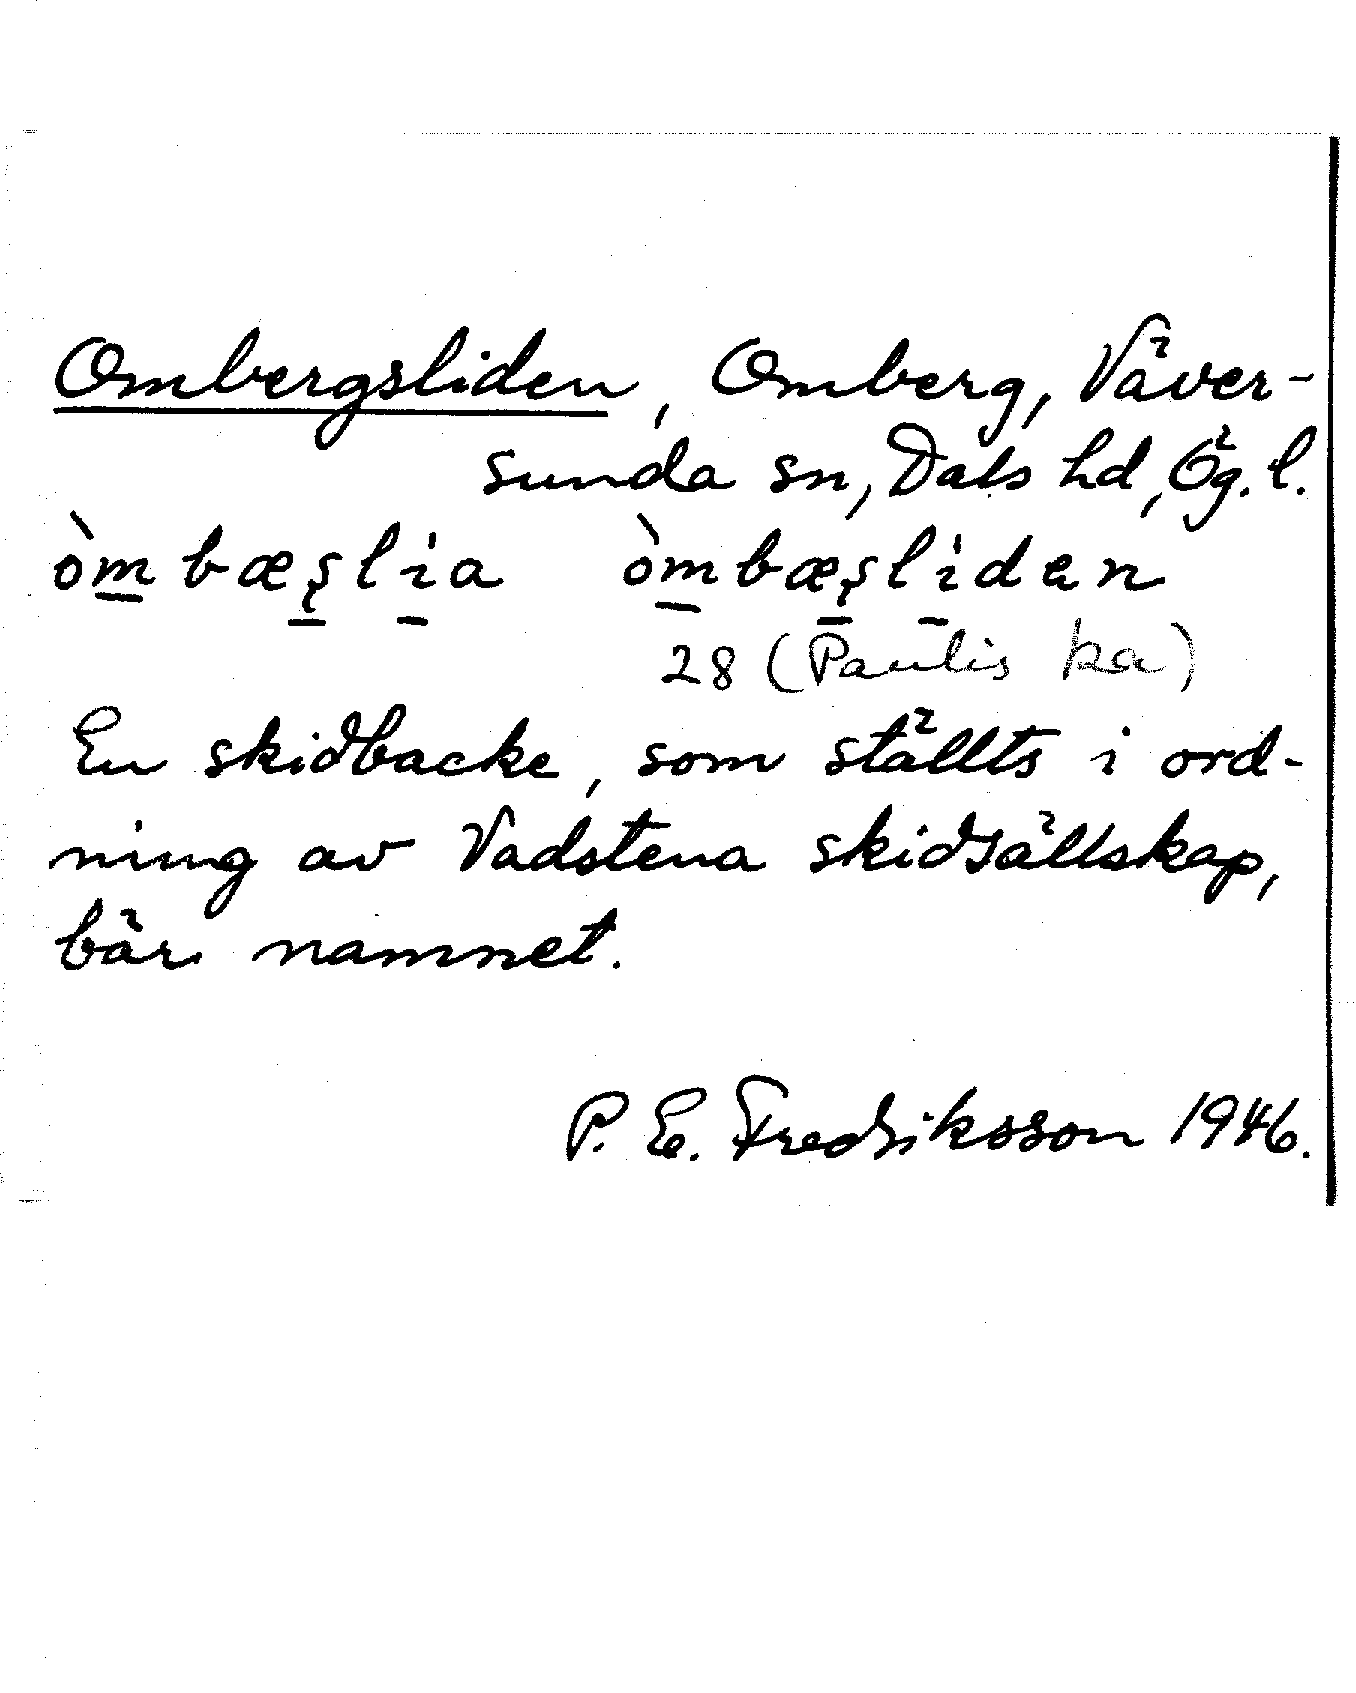 Ombergsliden, Omberg, Väver-
sunda sn, Dals hd, Ög. l.
òmbæʂlia òmbæʂliden
28 (Paulis ka)
En skidbacke, som ställts i ord-
ning av Vadstena skidsällskap,
bär namnet.
P. E. Fredriksson 1946.